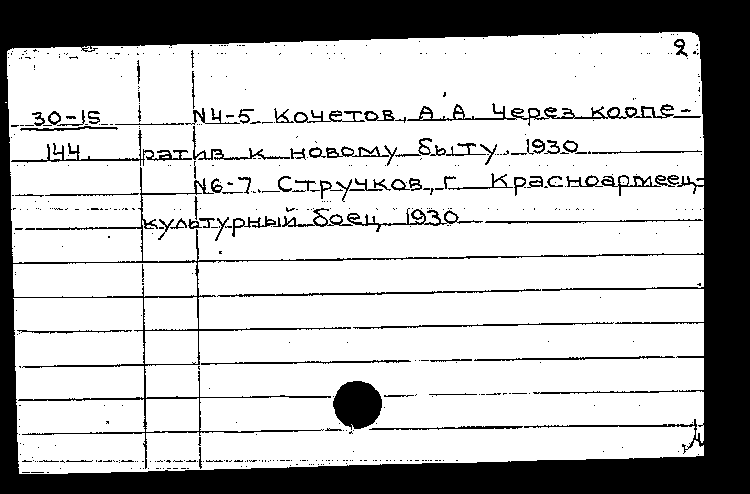 2.
30-15 N4-5. Кочетов, А.А. Через коопе-
144. ратив к новому быту. 1930
N6-7. Стручков, Г. Красноармеец-
культурный боец. 1930